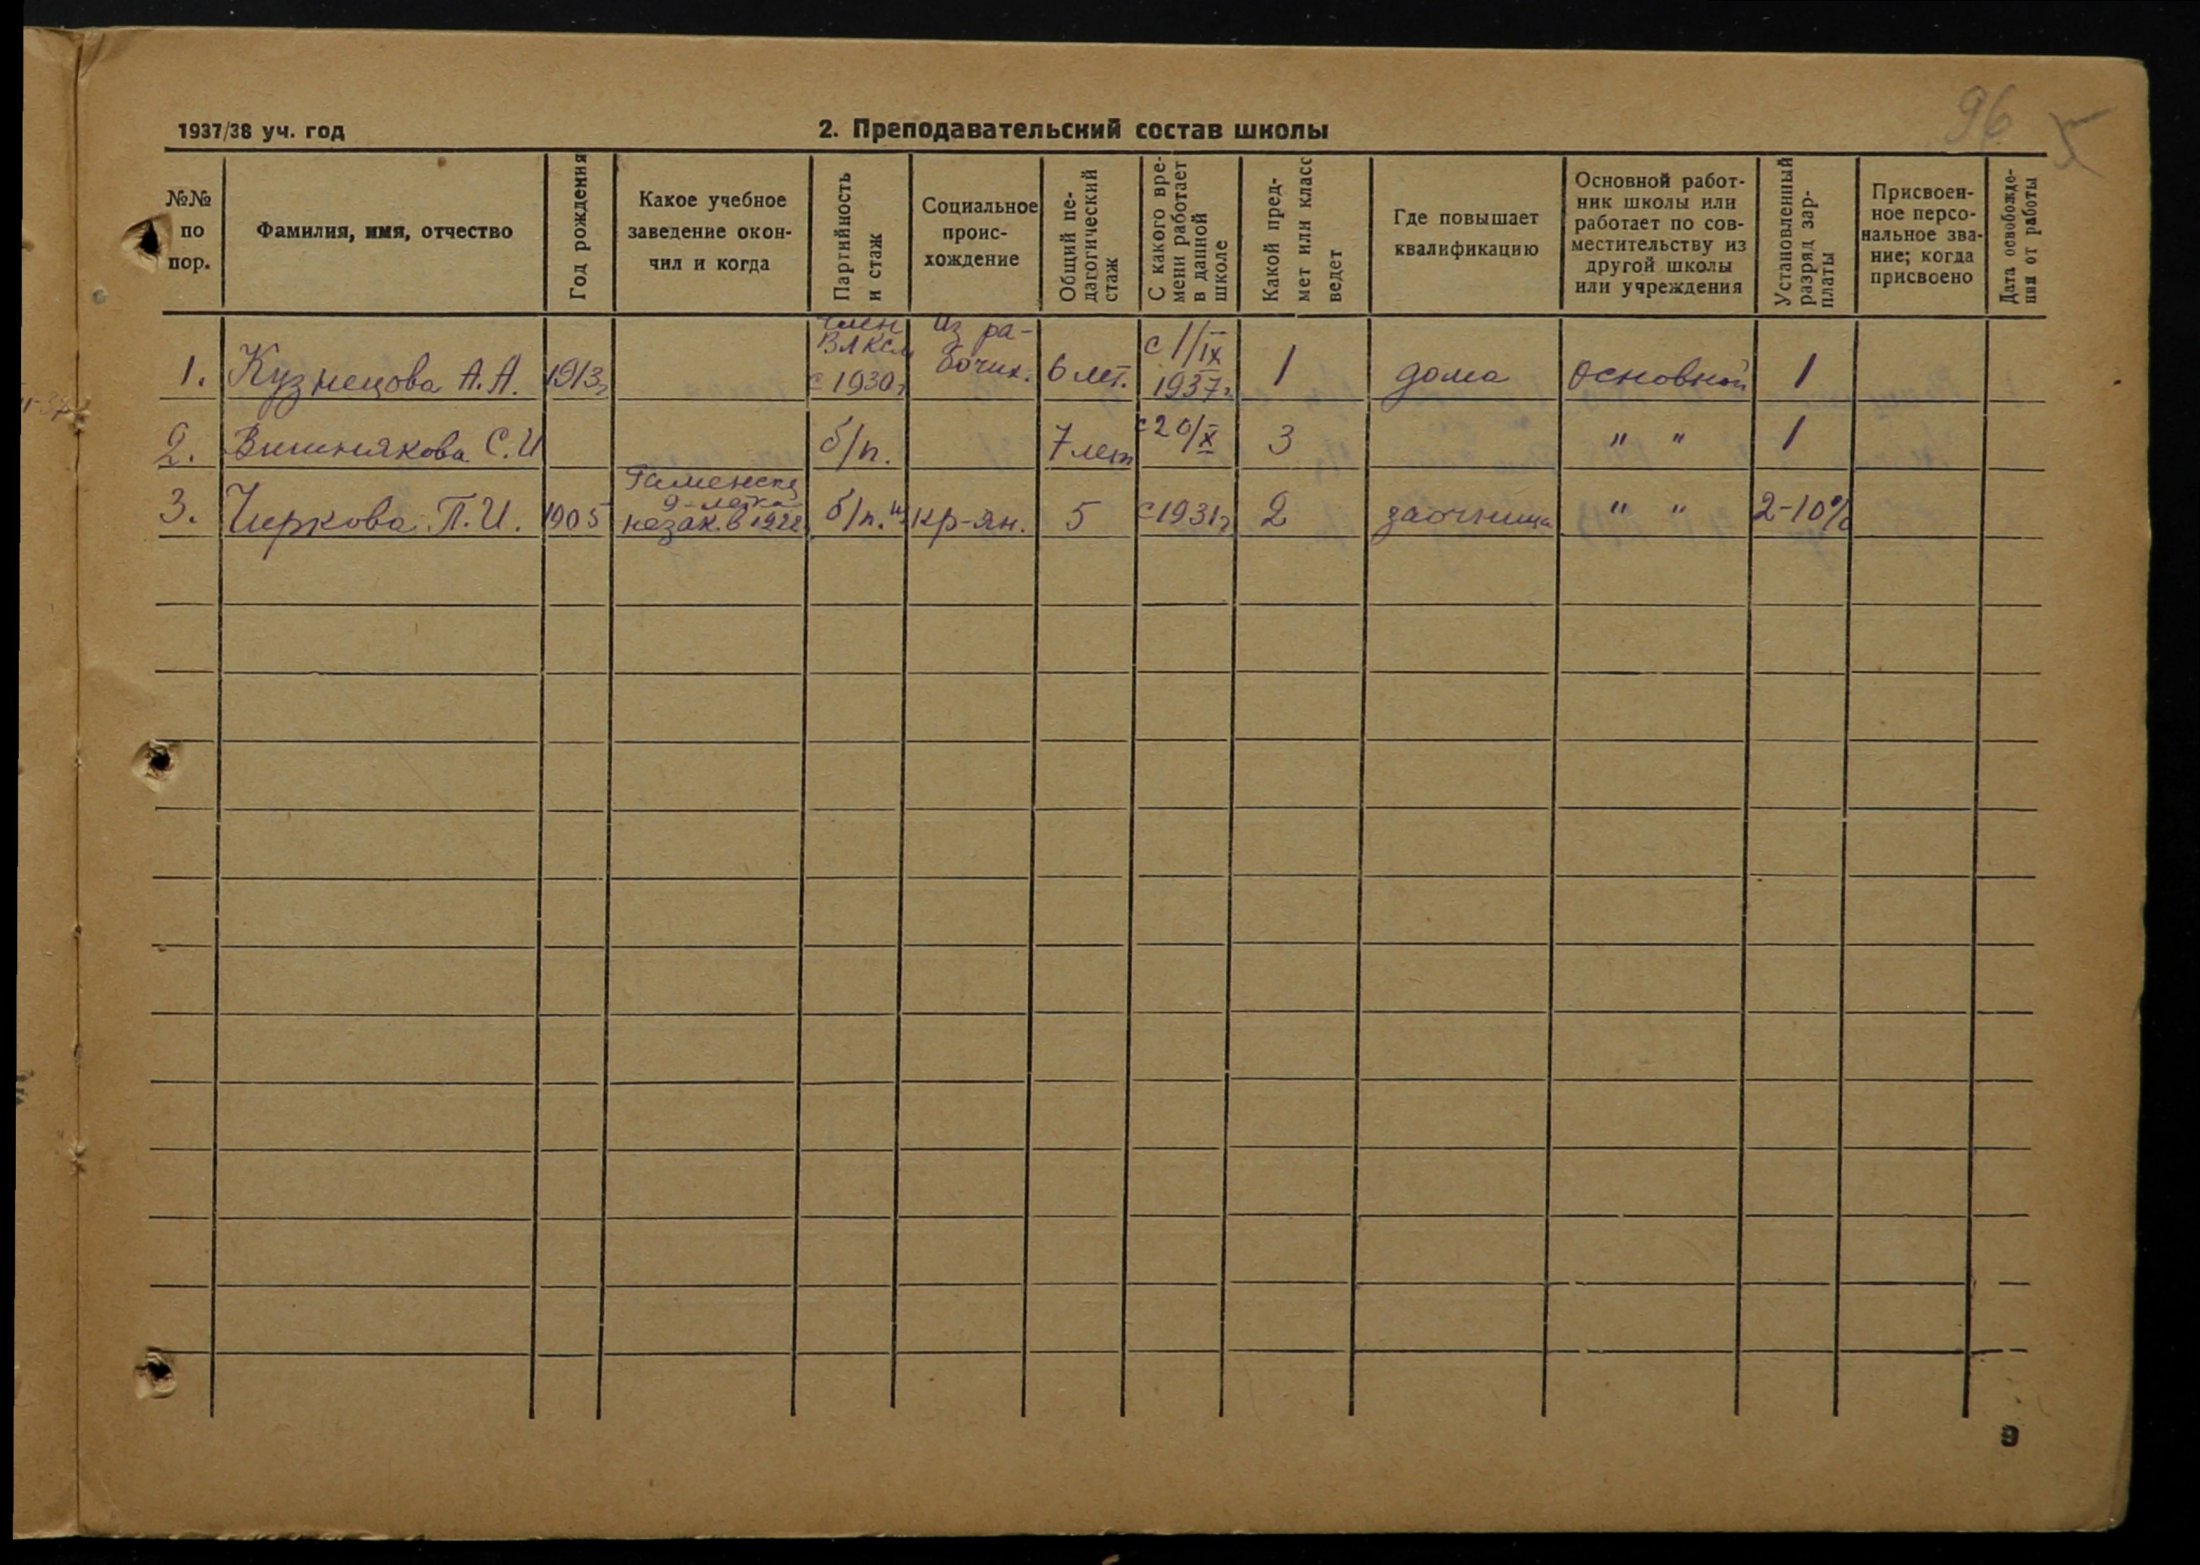 96 5
1937/38 уч. год
2. Преподавательский состав школы
№№ по пор.
Фамилия, имя, отчество
Год рождения
Какое учебное заведение окончил и когда
Партийность и стаж
Социальное происхождение
Общий педагогический стаж
С какого времени работает в данной школе
Какой предмет или класс ведет
Где повышает квалификацию
Основной работник школы или работает по совместительству из другой школы или учреждения
Установленный разряд зарплаты
Присвоенное персональное звание; когда присвоено
Дата освобождения от работы
1. Кузнецова А.А. 1913г член ВЛКСМ с 1930г из рабочих. 6 лет. с 1/IX 1937г 1 дома основной 1
2. Вишнякова С.И б/п. 7 лет с 20/X 3 " " 1
3. Чиркова П.И. 1905 9-летка незак. в 1922 б/п. из кр-ян. 5 с 1931г 2 заочница " " 2-10%
9